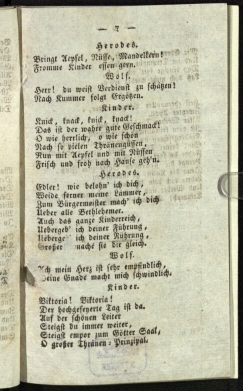 — 7 —
Herodes.
Bringt Aepfel, Nüsse, Mandelkern!
Fromme Kinder essen gern.
Wolf.
Herr! du weist Verdienst zu schätzen!
Nach Kummer folgt Ergötzen.
Kinder.
Knick, knack, knick, knack!
Das ist der wahre gute Geschmack!
O wie herrlich, o wie schön
Nach so vielen Thränengüssen,
Nun mit Aepfel und mit Nüssen
Frisch und froh nach Hause geh'n.
Herodes.
Edler! wie belohn' ich dich,
Weide ferner meine Lämmer,
Zum Bürgermeister mach' ich dich
Ueber alle Bethlehemer.
Auch das ganze Kinderreich,
Uebergeb' ich deiner Führung,
Uebergeb' ich deiner Führung,
Großer mache sie dir gleich.
Wolf.
Ach mein Herz ist sehr empfindlich,
Deine Gnade macht mich schwindlich.
Kinder.
Viktoria! Viktoria!
Der hochgefeyerte Tag ist da.
Auf der schönen Leiter
Steigst du immer weiter,
Steigst empor zum Götter Saal,
O großer Thränen-Prinzipal.